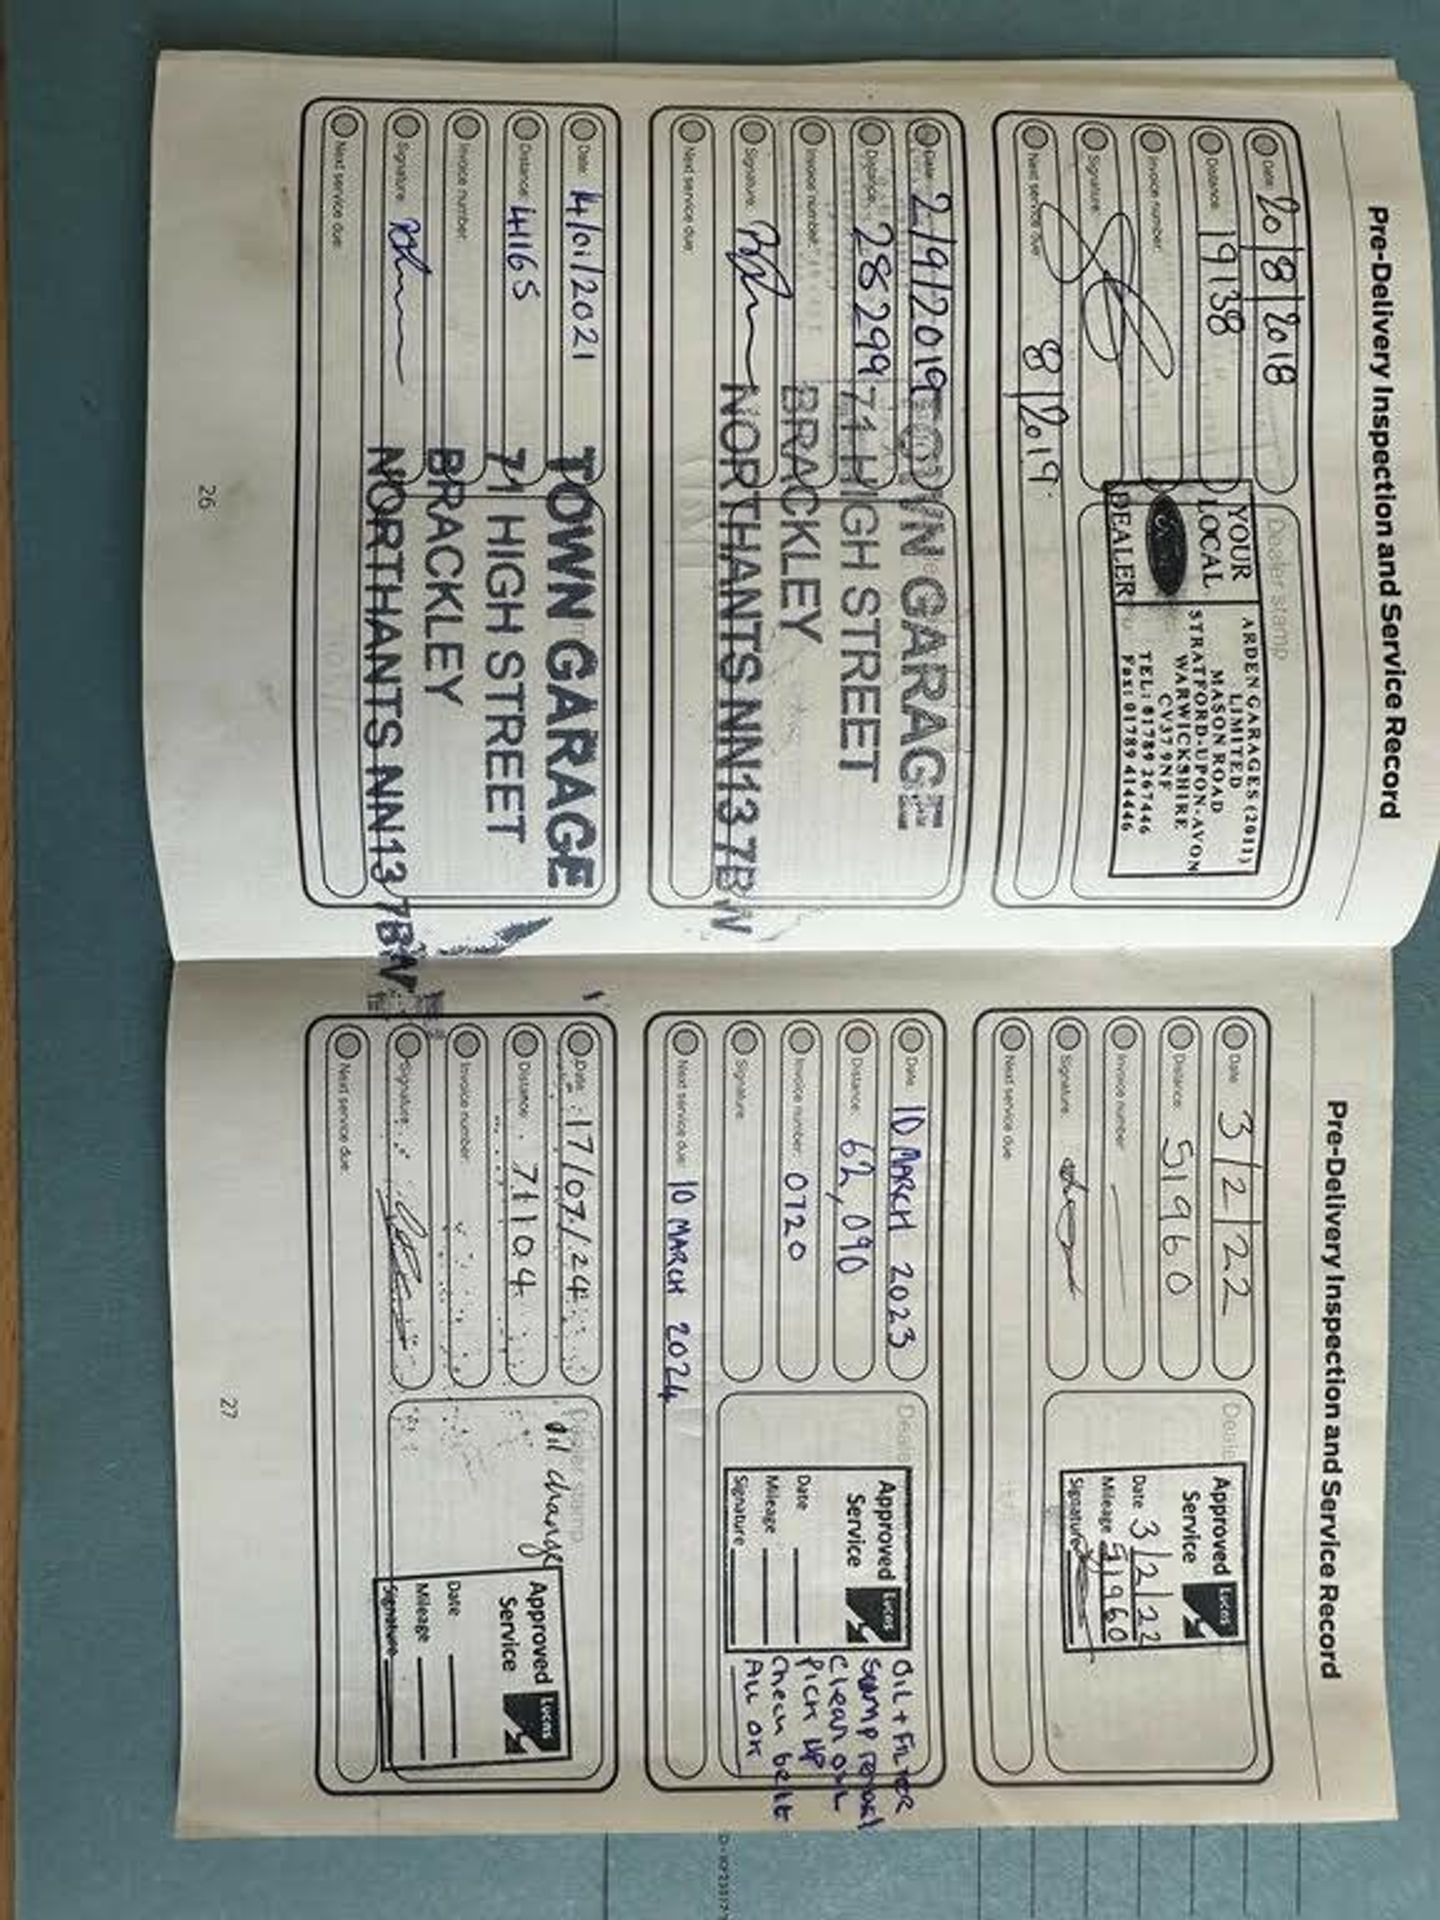 Pre-Delivery Inspection and Service Record
Date: 20/8/2018
Distance: 19138
Invoice number:
Signature:
Next service due: 8/2019.
Dealer stamp
YOUR
LOCAL
DEALER
ARDEN GARAGES (2011)
LIMITED
MASON ROAD
STRATFORD-UPON-AVON
WARWICKSHIRE
CV37 9NF
TEL: 01789 267446
Fax: 01789 414446
Date: 2/9/2019
Distance: 28299
Invoice number:
Signature:
Next service due:
TOWN GARAGE
71 HIGH STREET
BRACKLEY
NORTHANTS NN13 7BW
Date: 14/01/2021
Distance: 41165
Invoice number:
Signature:
Next service due:
TOWN GARAGE
71 HIGH STREET
BRACKLEY
NORTHANTS NN13 7BW
26
Pre-Delivery Inspection and Service Record
Date: 3/2/22
Distance: 51960
Invoice number:
Signature:
Next service due:
Approved
Service
Lucas
Date 3/2/22
Mileage 51960
Signature
Date: 10 MARCH 2023
Distance: 62,090
Invoice number: 0720
Signature:
Next service due: 10 MARCH 2024
Approved
Service
Lucas
Date
Mileage
Signature
OIL + FILTER
Sump
Clean
Pick up
Check belt
ALL OK
Date: 17/07/24
Distance: 71104
Invoice number:
Signature:
Next service due:
Dealer stamp
Oil change
Approved
Service
Lucas
Date
Mileage
Signature
27